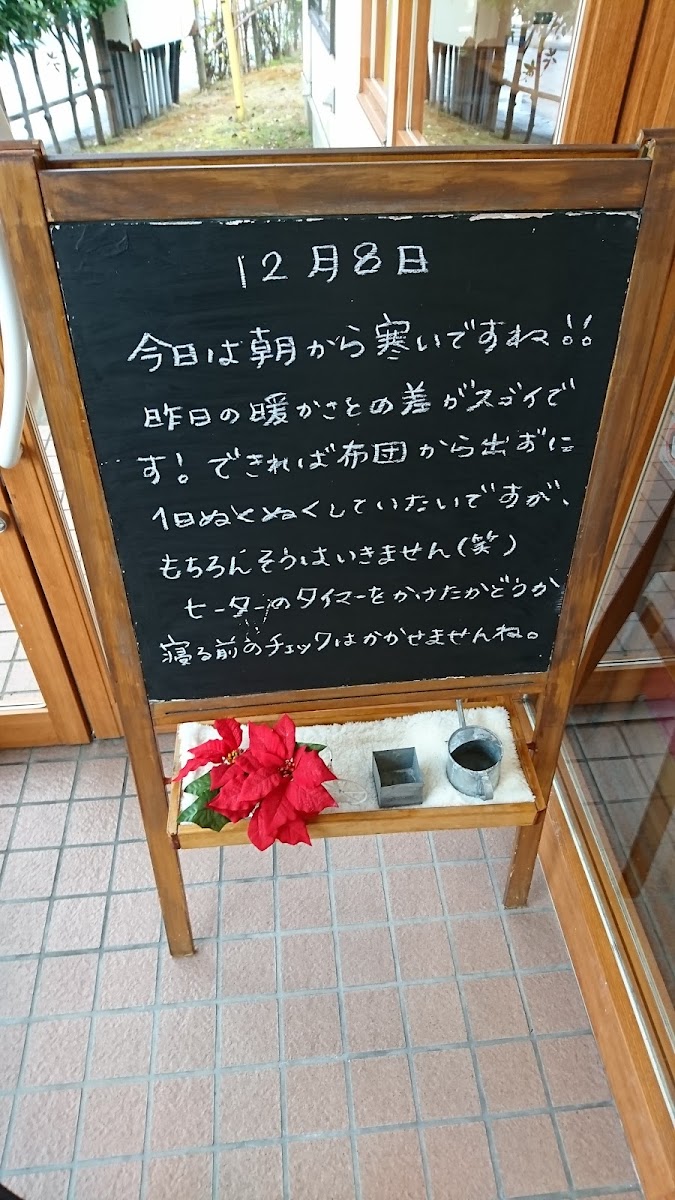 12月8日
今日は朝から寒いですね!!
昨日の暖かさとの差がスゴイで
す!できれば布団から出ずに
1日ぬくぬくしていたいですが、
もちろんそうはいきません(笑)
ヒーターのタイマーをかけたかどうか
寝る前のチェックはかかせませんね。